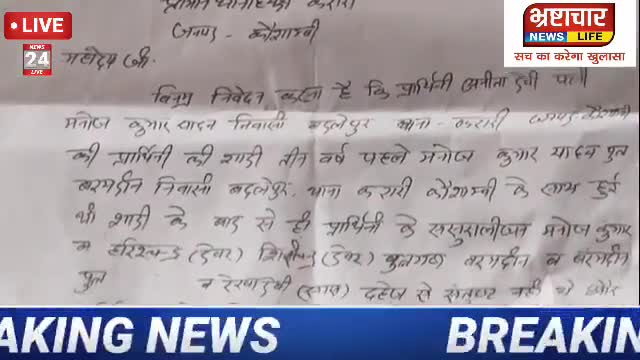 LIVE
NEWS
24
LIVE
भ्रष्टाचार
NEWS LIFE
सच का करेगा खुलासा
जनपद - कौशाम्बी
महोदय जी,
विनम्र निवेदन करना है कि प्रार्थिनी अनीता देवी
मनोज कुमार यादव निवासी बदलेपुर थाना - करारी जनपद कौशाम्बी
की प्रार्थिनी की शादी तीन वर्ष पहले मनोज कुमार यादव पुत्र
बरमदीन निवासी बदलेपुर थाना करारी कौशाम्बी के साथ हुई
थी शादी के बाद से ही प्रार्थिनी के ससुरालीजन मनोज कुमार
व हरिश्चन्द्र (देवर) (देवर) बरमदीन व बरमदीन
पुत्र व रेखादेवी (सास) दहेज से संतुष्ट नही थे और
AKING NEWS
BREAKIN